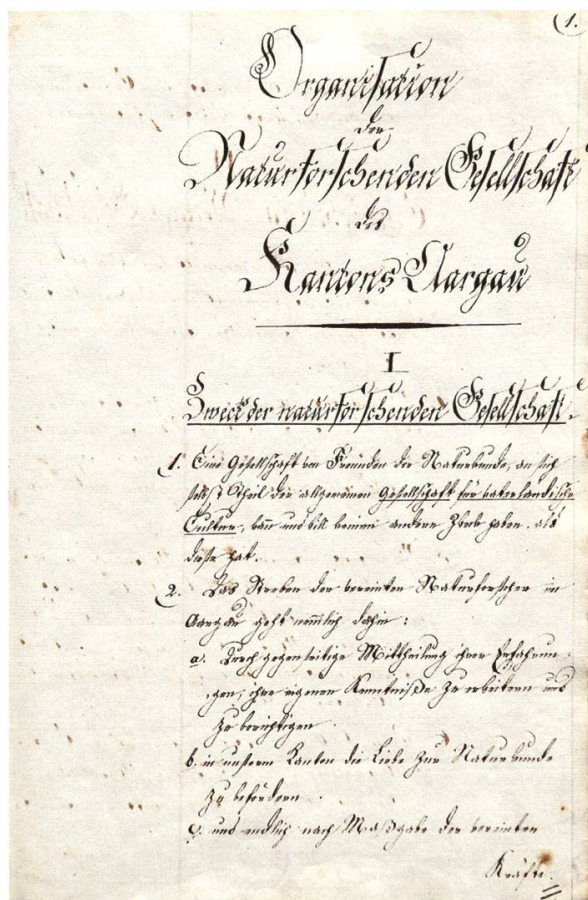 1.
Organisation
der
Naturforschenden Gesellschaft
des
Kantons Aargau
I
Zweck der naturforschenden Gesellschaft.
1. Eine Gesellschaft von Freunden der Naturkunde, an sich
selbst Theil der allgemeinen Gesellschaft für vaterländische
Cultur, kan und will keinen andern Zweck haben, als
diese hat.
2. Das Streben der vereinten Naturforscher im
Aargau geht nemlich dahin:
a. Durch gegenseitige Mittheilung ihrer Erfahrun-
gen, ihre eigenen Kenntniße zu erweitern und
zu berichtigen.
b. in unserm Kanton die Liebe zur Naturkunde
zu befördern.
c. und endlich nach Maßgabe der vereinten
Kräfte.